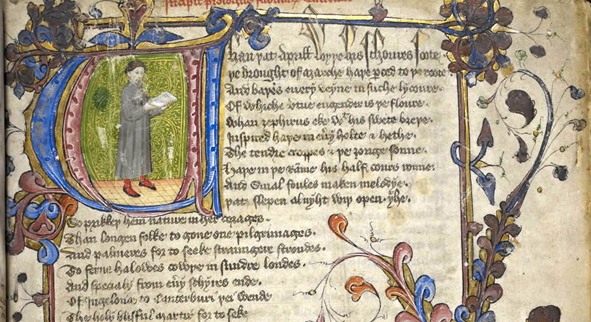 Whan þat Aprill wyþ his schoures soote
þe drought of marche haþe perced to þe roote
And baþed euery veyne in suche lycoure.
Of whiche vtue engendred is þe floure.
Whan zephirus eke wt his swete breþe.
Inspired haþe in eu̾y holte & hethe.
The tendre croppes & þe ȝonge sonne.
haþe in þe rame his half cours ronne.
And smal foules maken melodye.
þat slepen al nyght wiþ open yhe.
So prikkeþ hem nature in her corages.
Than longen folke to gone one pilgrimages.
And palmeres for to seeke straungere strondes.
To ferne halowes couþe in sundre londes.
And specialy from eu̾y schyres ende.
Of Ingelond to Canterbury þei wende
The holy blisful martir for to seke